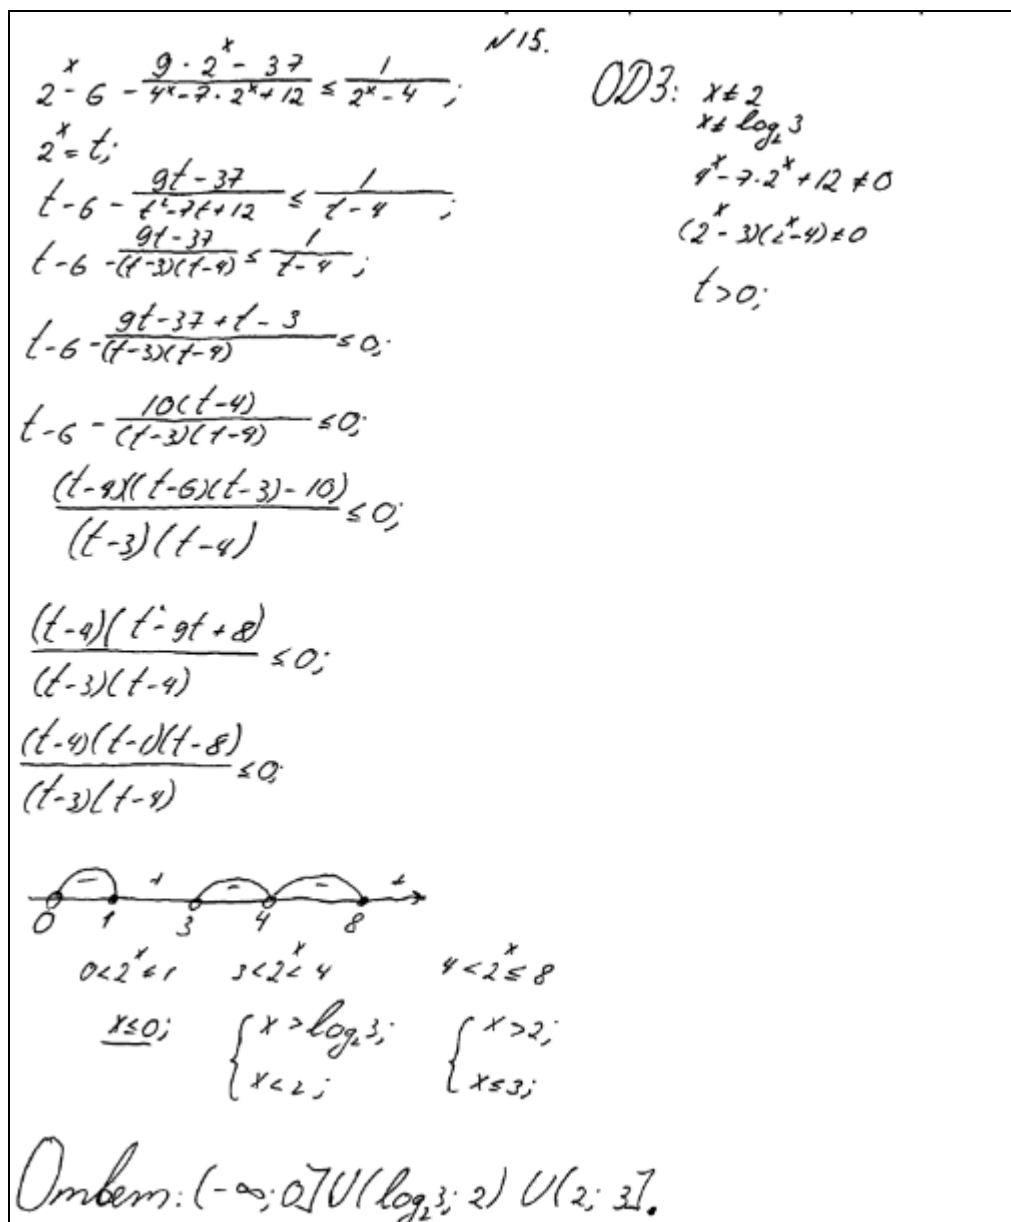 N15.
2^x - 6 - (9 · 2^x - 37)/(4^x - 7 · 2^x + 12) ≤ 1/(2^x - 4);
2^x = t;
t - 6 - (9t - 37)/(t² - 7t + 12) ≤ 1/(t - 4);
t - 6 - (9t - 37)/((t - 3)(t - 4)) ≤ 1/(t - 4);
t - 6 - (9t - 37 + t - 3)/((t - 3)(t - 4)) ≤ 0;
t - 6 - 10(t - 4)/((t - 3)(t - 4)) ≤ 0;
(t - 4)((t - 6)(t - 3) - 10)/((t - 3)(t - 4)) ≤ 0;
(t - 4)(t² - 9t + 8)/((t - 3)(t - 4)) ≤ 0;
(t - 4)(t - 1)(t - 8)/((t - 3)(t - 4)) ≤ 0;
ОДЗ: x ≠ 2
x ≠ log₂3
4^x - 7 · 2^x + 12 ≠ 0
(2^x - 3)(2^x - 4) ≠ 0
t > 0;
- + - - +
0 1 3 4 8
0 < 2^x ≤ 1 3 < 2^x < 4 4 < 2^x ≤ 8
x ≤ 0; { x > log₂3; { x > 2;
x < 2; x ≤ 3;
Ответ: (-∞; 0] U (log₂3; 2) U (2; 3].